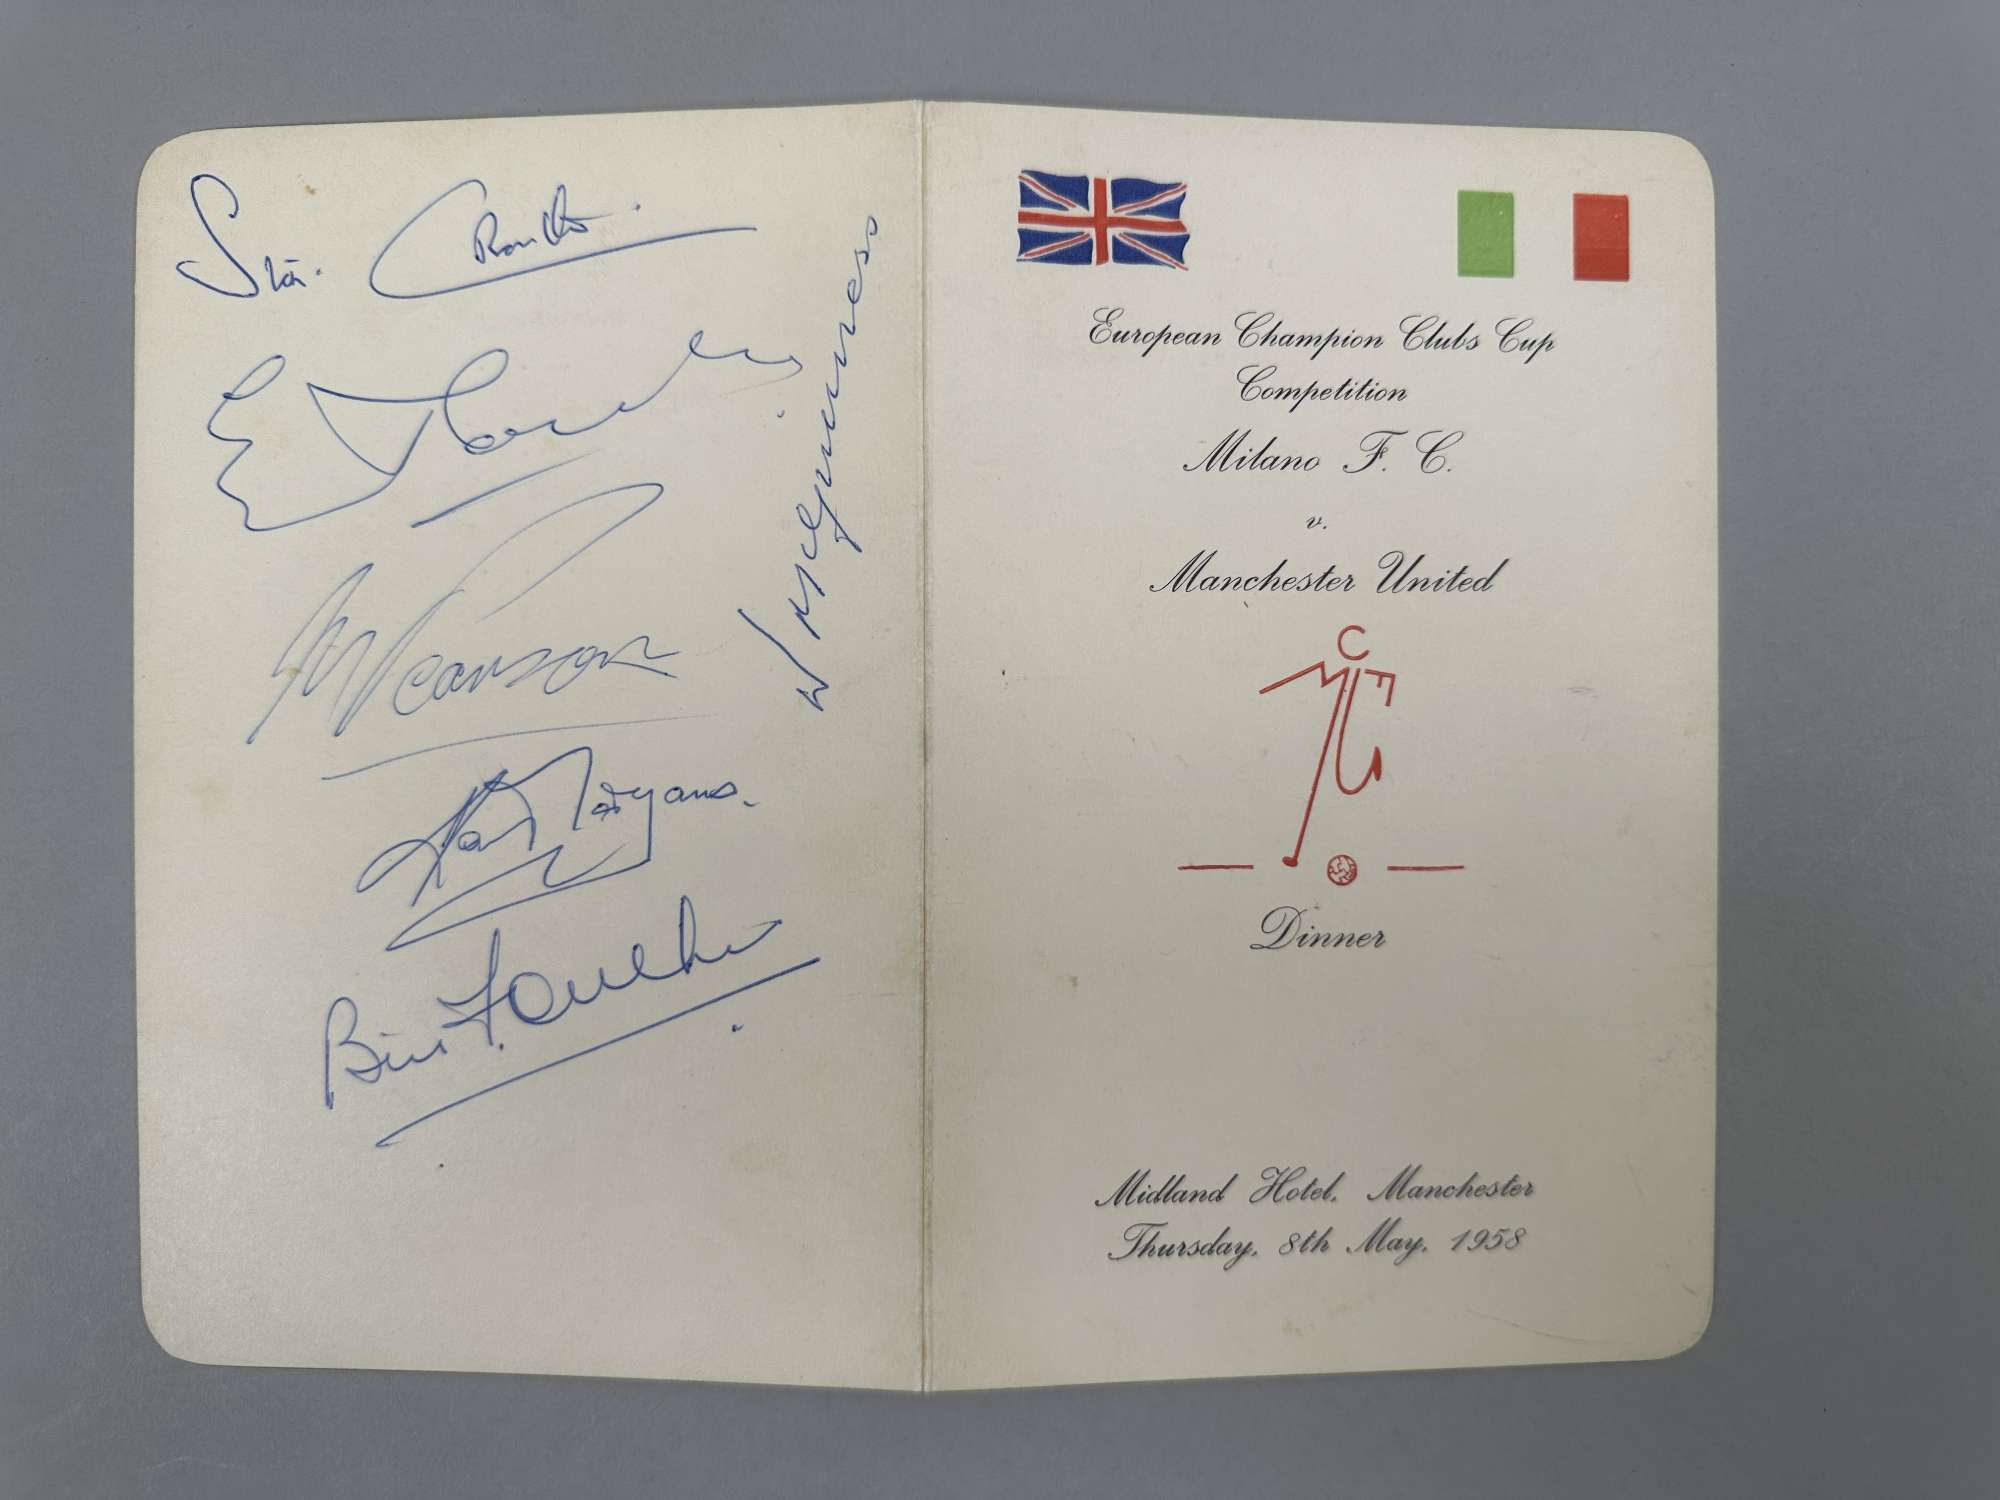 Stan. Crowther.
E Taylor
M Pearson
Ken Morgans.
Bill Foulkes
W Inglis
European Champion Clubs Cup
Competition
Milano F. C.
v.
Manchester United
M C F C
Dinner
Midland Hotel, Manchester
Thursday, 8th May, 1958